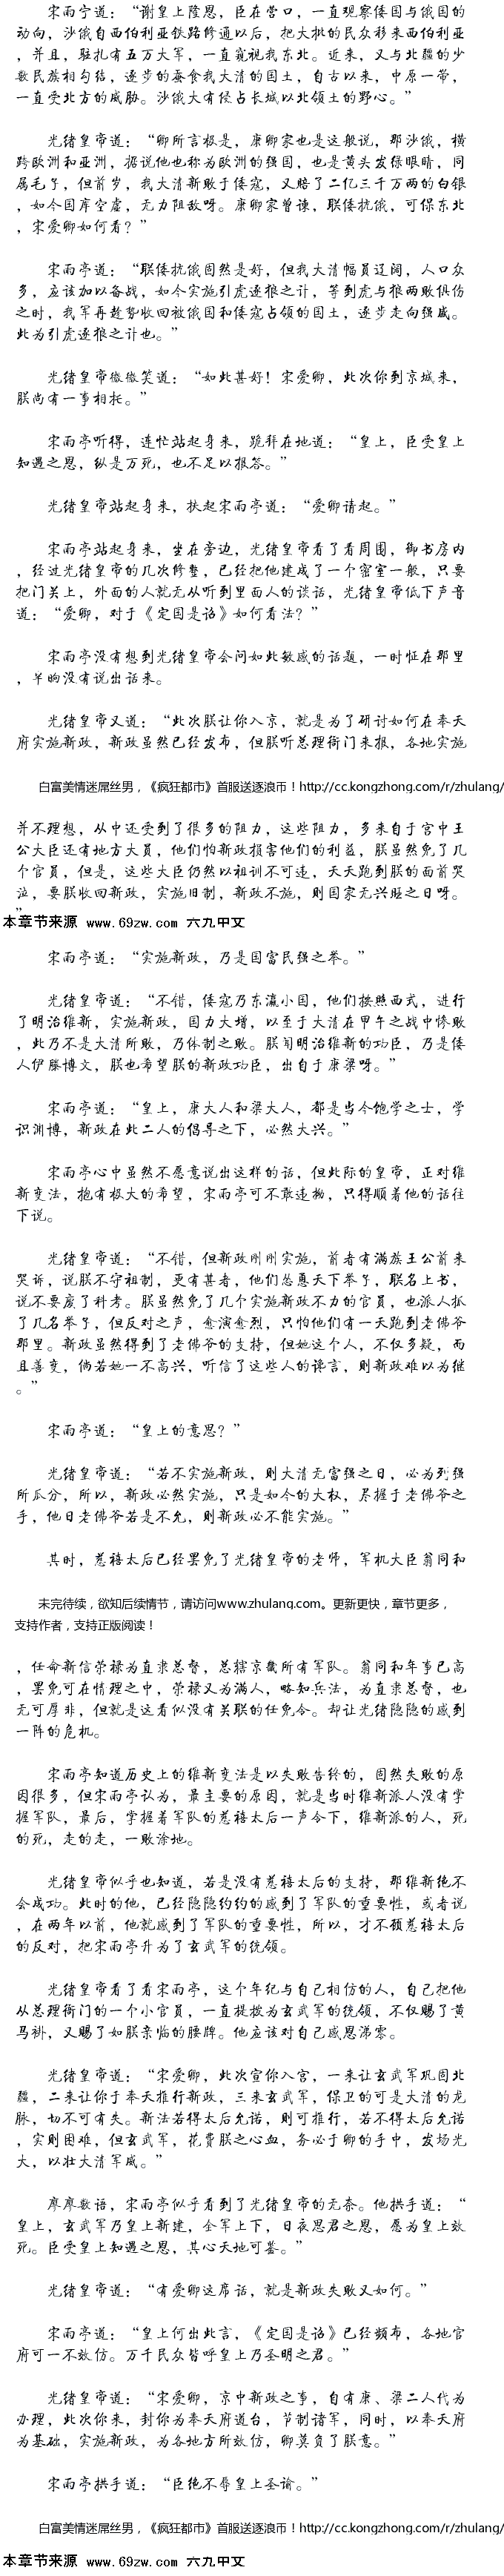 宋雨宁道：“谢皇上隆恩，臣在营口，一直观察倭国与俄国的
动向，沙俄自西伯利亚铁路修通以后，把大批的民众移来西伯利亚
，并且，驻扎有五万大军，一直窥视我东北。近来，又与北疆的少
数民族相勾结，逐步的蚕食我大清的国土，自古以来，中原一带，
一直受北方的威胁。沙俄大有侵占长城以北领土的野心。”
光绪皇帝道：“卿所言极是，康卿家也是这般说，那沙俄，横
跨欧洲和亚洲，据说他也称为欧洲的强国，也是黄头发绿眼睛，同
属毛子，但前岁，我大清新败于倭寇，又赔了二亿三千万两的白银
，如今国库空虚，无力阻敌呀。康卿家曾谏，联倭抗俄，可保东北
，宋爱卿如何看？”
宋雨亭道：“联倭抗俄固然是好，但我大清幅员辽阔，人口众
多，应该加以备战，如今实施引虎逐狼之计，等到虎与狼两败俱伤
之时，我军再趁势收回被俄国和倭寇占领的国土，逐步走向强盛。
此为引虎逐狼之计也。”
光绪皇帝微微笑道：“如此甚好！宋爱卿，此次你到京城来，
朕尚有一事相托。”
宋雨亭听得，连忙站起身来，跪拜在地道：“皇上，臣受皇上
知遇之恩，纵是万死，也不足以报答。”
光绪皇帝站起身来，扶起宋雨亭道：“爱卿请起。”
宋雨亭站起身来，坐在旁边，光绪皇帝看了看周围，御书房内
，经过光绪皇帝的几次修整，已经把他建成了一个密室一般，只要
把门关上，外面的人就无从听到里面人的谈话，光绪皇帝低下声音
道：“爱卿，对于《定国是诏》如何看法？”
宋雨亭没有想到光绪皇帝会问如此敏感的话题，一时怔在那里
，半晌没有说出话来。
光绪皇帝又道：“此次朕让你入京，就是为了研讨如何在奉天
府实施新政，新政虽然已经发布，但朕听总理衙门来报，各地实施
白富美情迷屌丝男，《疯狂都市》首服送逐浪币！http://cc.kongzhong.com/r/zhulang/
并不理想，从中还受到了很多的阻力，这些阻力，多来自于宫中王
公大臣还有地方大员，他们怕新政损害他们的利益，朕虽然免了几
个官员，但是，这些大臣仍然以祖训不可违，天天跑到朕的面前哭
泣，要朕收回新政，实施旧制，新政不施，则国家无兴旺之日呀。
”
本章节来源 www.69zw.com 六九中文
宋雨亭道：“实施新政，乃是国富民强之举。”
光绪皇帝道：“不错，倭寇乃东瀛小国，他们按照西式，进行
了明治维新，实施新政，国力大增，以至于大清在甲午之战中惨败
，此乃不是大清所败，乃体制之败。朕闻明治维新的功臣，乃是倭
人伊藤博文，朕也希望朕的新政功臣，出自于康梁呀。”
宋雨亭道：“皇上，康大人和梁大人，都是当今饱学之士，学
识渊博，新政在此二人的倡导之下，必然大兴。”
宋雨亭心中虽然不愿意说出这样的话，但此际的皇帝，正对维
新变法，抱有极大的希望，宋雨亭可不敢违拗，只得顺着他的话往
下说。
光绪皇帝道：“不错，但新政刚刚实施，前者有满族王公前来
哭诉，说朕不守祖制，更有甚者，他们怂恿天下举子，联名上书，
说不要废了科考。朕虽然免了几个实施新政不力的官员，也派人抓
了几名举子，但反对之声，愈演愈烈，只怕他们有一天跑到老佛爷
那里。新政虽然得到了老佛爷的支持，但她这个人，不仅多疑，而
且善变，倘若她一不高兴，听信了这些人的谗言，则新政难以为继
。”
宋雨亭道：“皇上的意思？”
光绪皇帝道：“若不实施新政，则大清无富强之日，必为列强
所瓜分，所以，新政必然实施，只是如今的大权，尽握于老佛爷之
手，他日老佛爷若是不允，则新政必不能实施。”
其时，慈禧太后已经罢免了光绪皇帝的老师，军机大臣翁同和
未完待续，欲知后续情节，请访问www.zhulang.com。更新更快，章节更多，
支持作者，支持正版阅读！
，任命新信荣禄为直隶总督，总辖京畿所有军队。翁同和年事已高
，罢免可在情理之中，荣禄又为满人，略知兵法，为直隶总督，也
无可厚非，但就是这看似没有关联的任免令。却让光绪隐隐的感到
一阵的危机。
宋雨亭知道历史上的维新变法是以失败告终的，固然失败的原
因很多，但宋雨亭认为，最主要的原因，就是当时维新派人没有掌
握军队，最后，掌握着军队的慈禧太后一声令下，维新派的人，死
的死，走的走，一败涂地。
光绪皇帝似乎也知道，若是没有慈禧太后的支持，那维新绝不
会成功。此时的他，已经隐隐约约的感到了军队的重要性，或者说
，在两年以前，他就感到了军队的重要性，所以，才不顾慈禧太后
的反对，把宋雨亭升为了玄武军的统领。
光绪皇帝看了看宋雨亭，这个年纪与自己相仿的人，自己把他
从总理衙门的一个小官员，一直提拔为玄武军的统领，不仅赐了黄
马褂，又赐了如朕亲临的腰牌。他应该对自己感恩涕零。
光绪皇帝道：“宋爱卿，此次宣你入宫，一来让玄武军巩固北
疆，二来让你于奉天推行新政，三来玄武军，保卫的可是大清的龙
脉，切不可有失。新法若得太后允诺，则可推行，若不得太后允诺
，实则困难，但玄武军，花费朕之心血，务必于卿的手中，发场光
大，以壮大清军威。”
廖廖数语，宋雨亭似乎看到了光绪皇帝的无奈。他拱手道：“
皇上，玄武军乃皇上新建，全军上下，日夜思君之恩，愿为皇上效
死。臣受皇上知遇之恩，其心天地可鉴。”
光绪皇帝道：“有爱卿这席话，就是新政失败又如何。”
宋雨亭道：“皇上何出此言，《定国是诏》已经颁布，各地官
府可一不效仿。万千民众皆呼皇上乃圣明之君。”
光绪皇帝道：“宋爱卿，京中新政之事，自有康、梁二人代为
办理，此次你来，封你为奉天府道台，节制诸军，同时，以奉天府
为基础，实施新政，为各地方所效仿，卿莫负了朕意。”
宋雨亭拱手道：“臣绝不辱皇上圣谕。”
白富美情迷屌丝男，《疯狂都市》首服送逐浪币！http://cc.kongzhong.com/r/zhulang/
本章节来源 www.69zw.com 六九中文